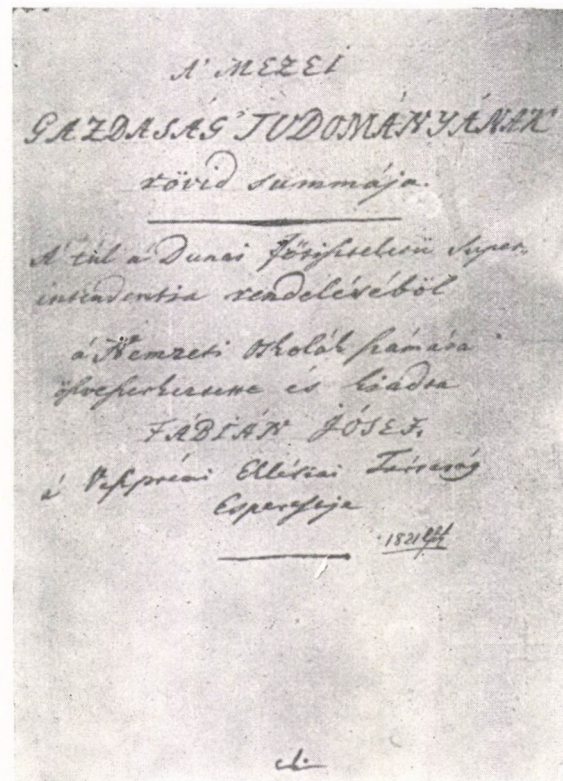 A' MEZEI
GAZDASÁG' TUDOMÁNYÁNAK
rövid summája.
A' túl a' Dunai Superintendentia
rendeléséből
a' Nemzeti Oskolák számára
öszveszerkesztette és kiadta
FÁBIÁN JÓSEF,
a' Veszprémi Társaság
Esperestje
1821